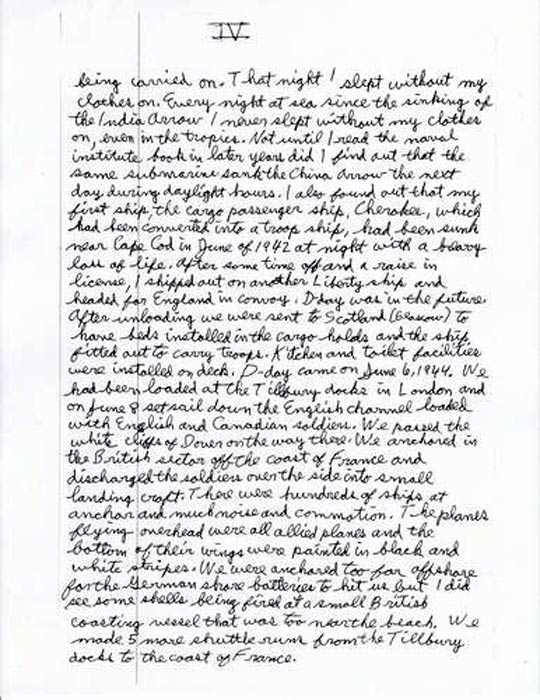 IV
being carried on. That night I slept without my
clothes on. Every night at sea since the sinking of
the India Arrow I never slept without my clothes
on, even in the tropics. Not until I read the naval
institute book in later years did I find out that the
same submarine sank the China Arrow the next
day during daylight hours. I also found out that my
first ship, the cargo passenger ship, Cherokee, which
had been converted into a troop ship, had been sunk
near Cape Cod in June of 1942 at night with a heavy
loss of life. After some time off and a raise in
license, I shipped out on another Liberty ship and
headed for England in convoy. D-day was in the future.
After unloading we were sent to Scotland (Glasgow) to
have beds installed in the cargo holds and the ship
fitted out to carry troops. Kitchen and toilet facilities
were installed on deck. D-day came on June 6, 1944. We
had been loaded at the Tillbury docks in London and
on June 8 set sail down the English channel loaded
with English and Canadian soldiers. We passed the
white cliffs of Dover on the way there. We anchored in
the British sector off the coast of France and
discharged the soldiers over the side into small
landing craft. There were hundreds of ships at
anchor and much noise and commotion. The planes
flying overhead were all allied planes and the
bottom of their wings were painted in black and
white stripes. We were anchored too far offshore
for the German shore batteries to hit us but I did
see some shells being fired at a small British
coasting vessel that was too near the beach. We
made 5 more shuttle runs from the Tillbury
docks to the coast of France.